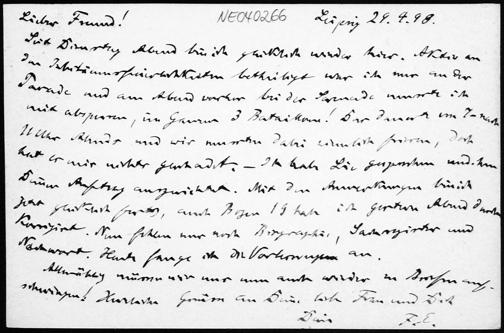 NE040266
Lieber Freund! Leipzig 29.4.98.
Seit Dienstag Abend bin ich glücklich wieder hier. Aktiv an
den Jubiläumsfeierlichkeiten betheiligt war ich nur an der
Parade und am Abend vorher bei der Serenade musste ich
mit absperren, im Ganzen 3 Bataillone! Das dauerte von 7 nach
11 Uhr Abends und wir mussten dabei ziemlich frieren, doch
hat es mir nichts geschadet. – Ich habe Lie gesprochen und ihm
Deinen Auftrag ausgerichtet. Mit den Anmerkungen bin ich
jetzt glücklich fertig, auch Bogen 19 habe ich gestern Abend durch
korrigirt. Nun fehlen nur noch Biographie, Sachregister und
Nachwort. Heute fange ich die Vorlesungen an.
Allmählig müssen wir uns nun auch wieder zu Briefen auf-
schwingen! Herzliche Grüsse an Deine liebe Frau und Dich
Dein F. E.